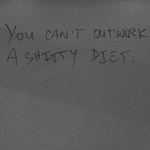 YOU CAN'T OUTWORK
A SHITTY DIET.